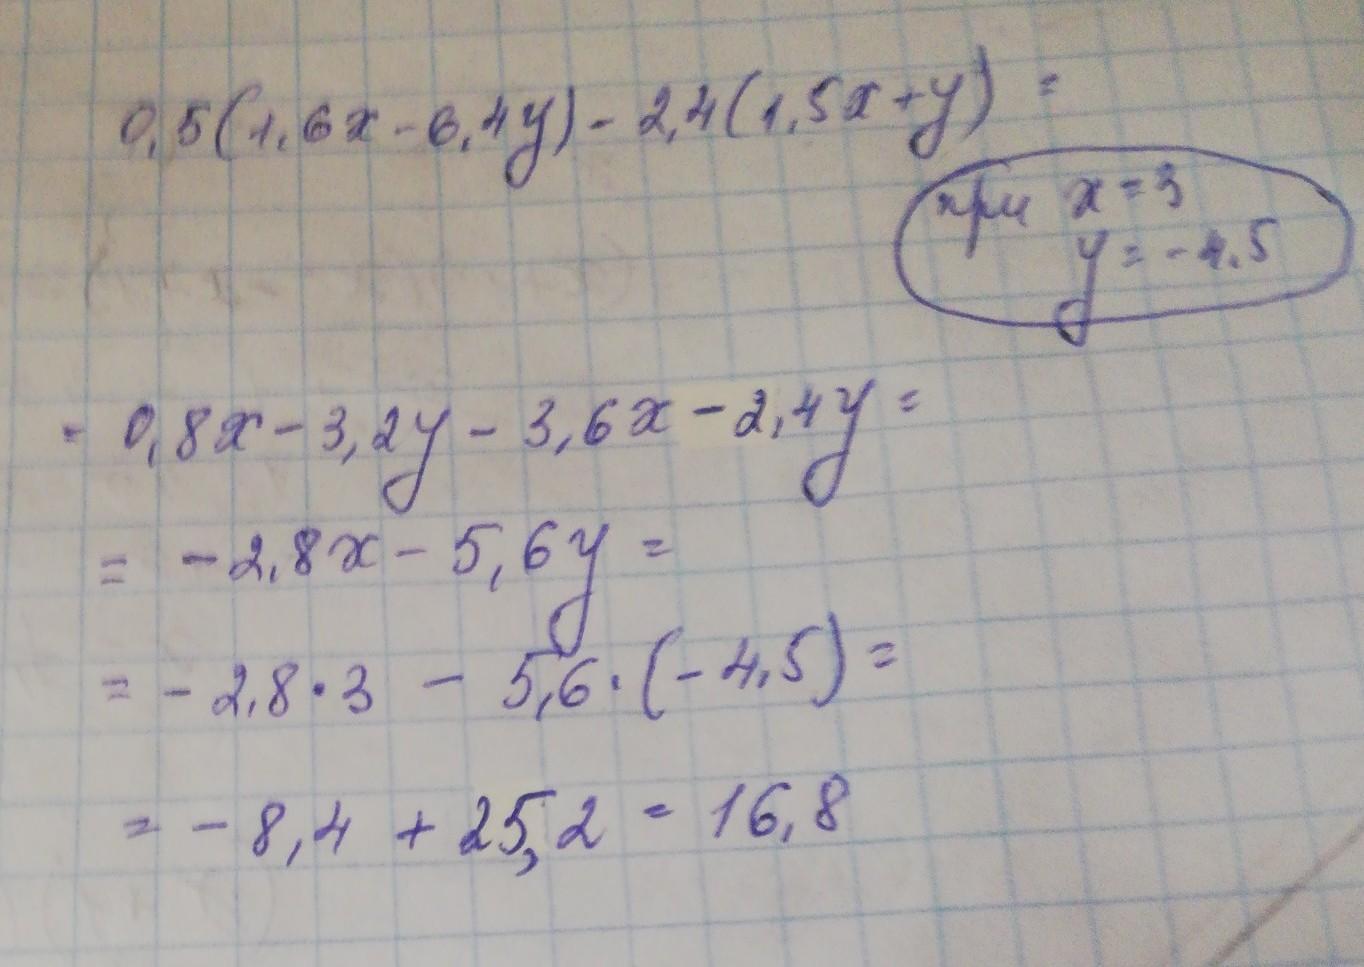 0,5(1,6x-6,4y)-2,4(1,5x+y) =
при x=3
y=-4,5
= 0,8x-3,2y-3,6x-2,4y=
= -2,8x-5,6y=
= -2,8·3 - 5,6·(-4,5)=
= -8,4 + 25,2 = 16,8